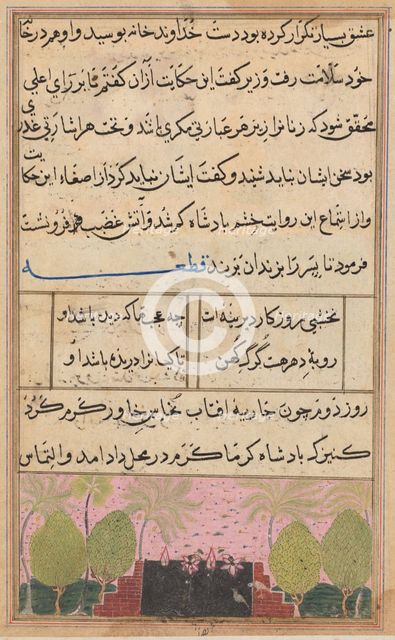 عشق بسیار تکرار کرده بود دست خداوند خانه بوسید و او هم در خانهٔ
خود سلامت رفت وزیر کفت این حکایت از ان کفتم تا بر رای اعلی
محقق شود که زنانرا زیر هر عبارتی مکری اند و تحت هر اشارتی غدری
بود سخن ایشان نباید شنید و کفت ایشان نباید کرد از اصغاء این حکایت
و از استماع این روایت خشم بادشاه کم شد و اتش غضب هم فرو نشست
فرمود تا پسر را بزندان بزند قطعه
نخشبی روزکار دیرینه است چه عجبها که دیده باشد او
روبهٔ دهر هست کرک کهن تا کیانرا دریده باشد او
روز دوم چون جاریهٔ افتاب نخاس خاور کرم کرد
کنیزک بادشاه کرما کرم در محل داد امد و التماس